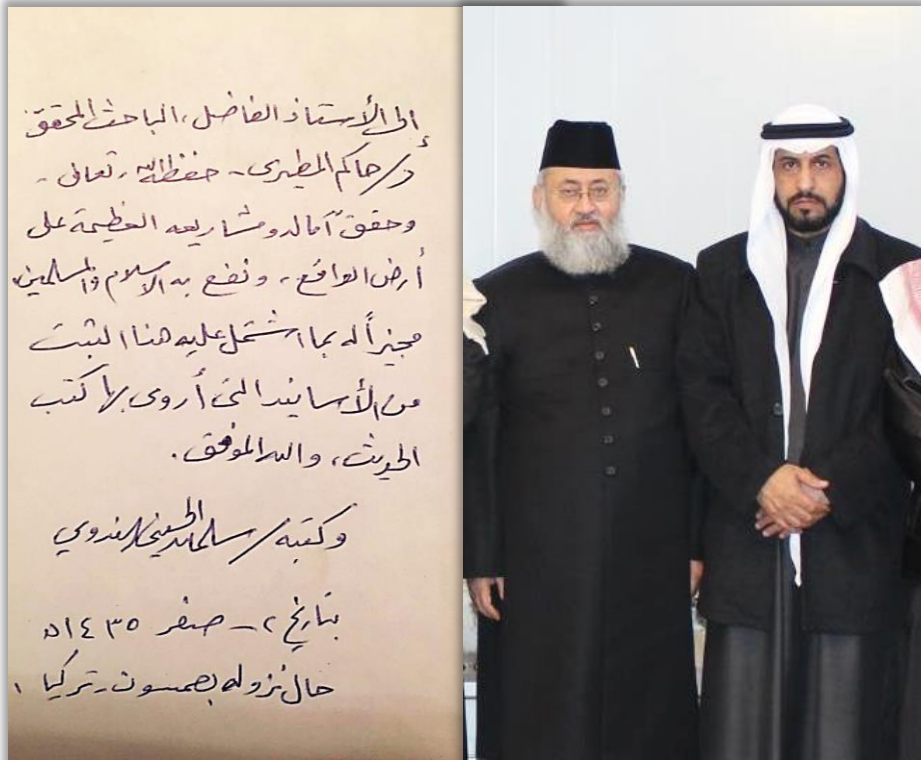 الى الأستاذ الفاضل، الباحث المحقق
أ.د/ حاكم المطيرى - حفظه الله، تعالى -
وحقق آماله ومشاريعه العظيمة على
أرض الواقع، ونفع به الاسلام والمسلمين
مجيزاً له بما اشتمل عليه هذا الثبت
من الأسانيد التى أروى بها كتب
الحديث، والله الموفق.
وكتبه/ سلمان الحسيني الندوي
بتاريخ ٢ - صفر ١٤٣٥ھ
حال نزوله بصمسون - تركيا